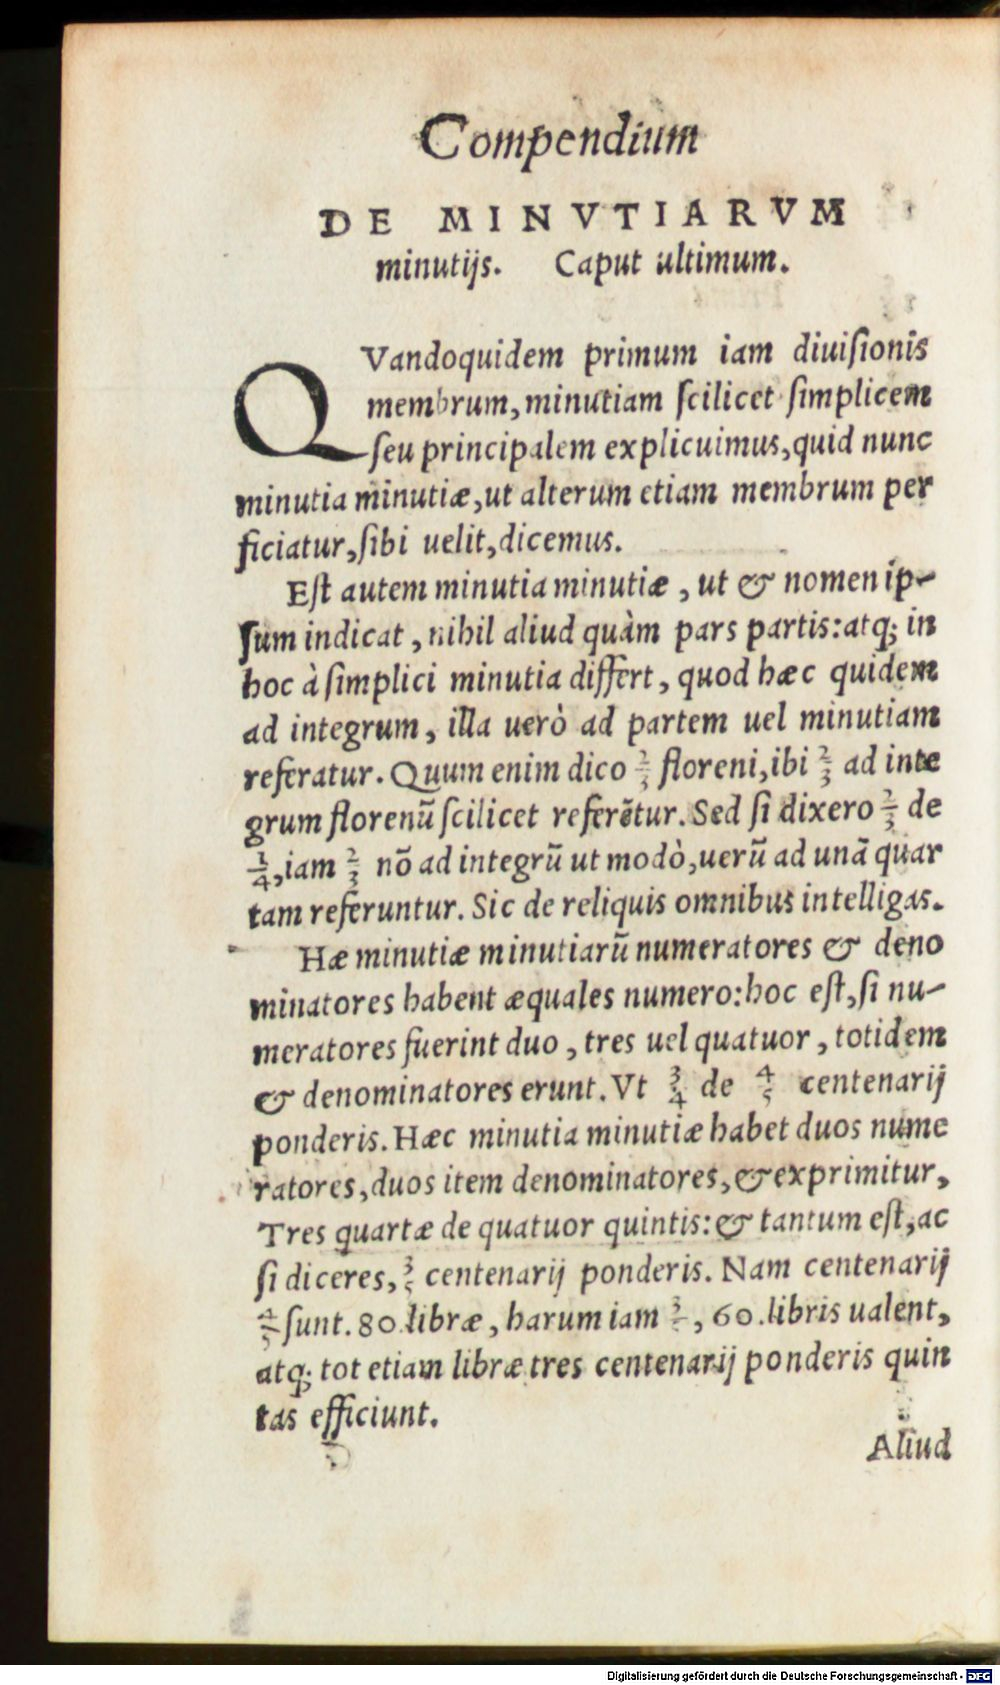 Compendium
DE MINVTIARVM
minutijs. Caput ultimum.
QVandoquidem primum iam diuiſionis
membrum, minutiam ſcilicet ſimplicem
ſeu principalem explicuimus, quid nunc
minutia minutiæ, ut alterum etiam membrum per
ficiatur, ſibi uelit, dicemus.
Eſt autem minutia minutiæ, ut & nomen ip-
ſum indicat, nihil aliud quàm pars partis: atq; in
hoc à ſimplici minutia differt, quod hæc quidem
ad integrum, illa uerò ad partem uel minutiam
referatur. Quum enim dico 2/3 floreni, ibi 2/3 ad inte
grum florenũ ſcilicet referẽtur. Sed ſi dixero 2/3 de
1/4, iam 2/3 nõ ad integrũ ut modò, uerũ ad unã quar
tam referuntur. Sic de reliquis omnibus intelligas.
Hæ minutiæ minutiarũ numeratores & deno
minatores habent æquales numero: hoc eſt, ſi nu-
meratores fuerint duo, tres uel quatuor, totidem
& denominatores erunt. Vt 3/4 de 4/5 centenarij
ponderis. Hæc minutia minutiæ habet duos nume
ratores, duos item denominatores, & exprimitur,
Tres quartæ de quatuor quintis: & tantum eſt, ac
ſi diceres, 3/5 centenarij ponderis. Nam centenarij
4/5 ſunt. 80. libræ, harum iam 3/4, 60. libris ualent,
atq; tot etiam libræ tres centenarij ponderis quin
tas efficiunt.
Aliud
Digitalisierung gefördert durch die Deutsche Forschungsgemeinschaft - DFG